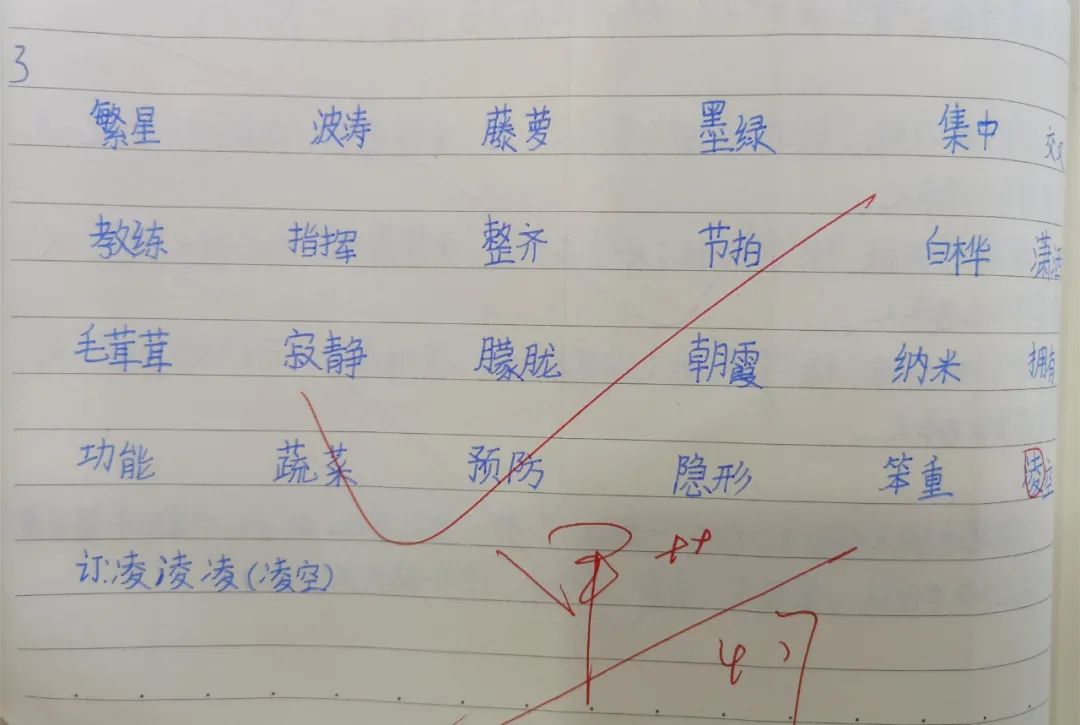 3
繁星 波涛 藤萝 墨绿 集中 交叉
教练 指挥 整齐 节拍 白桦 潇洒
毛茸茸 寂静 朦胧 朝霞 纳米 拥有
功能 蔬菜 预防 隐形 笨重 凌空
订:凌凌凌(凌空)